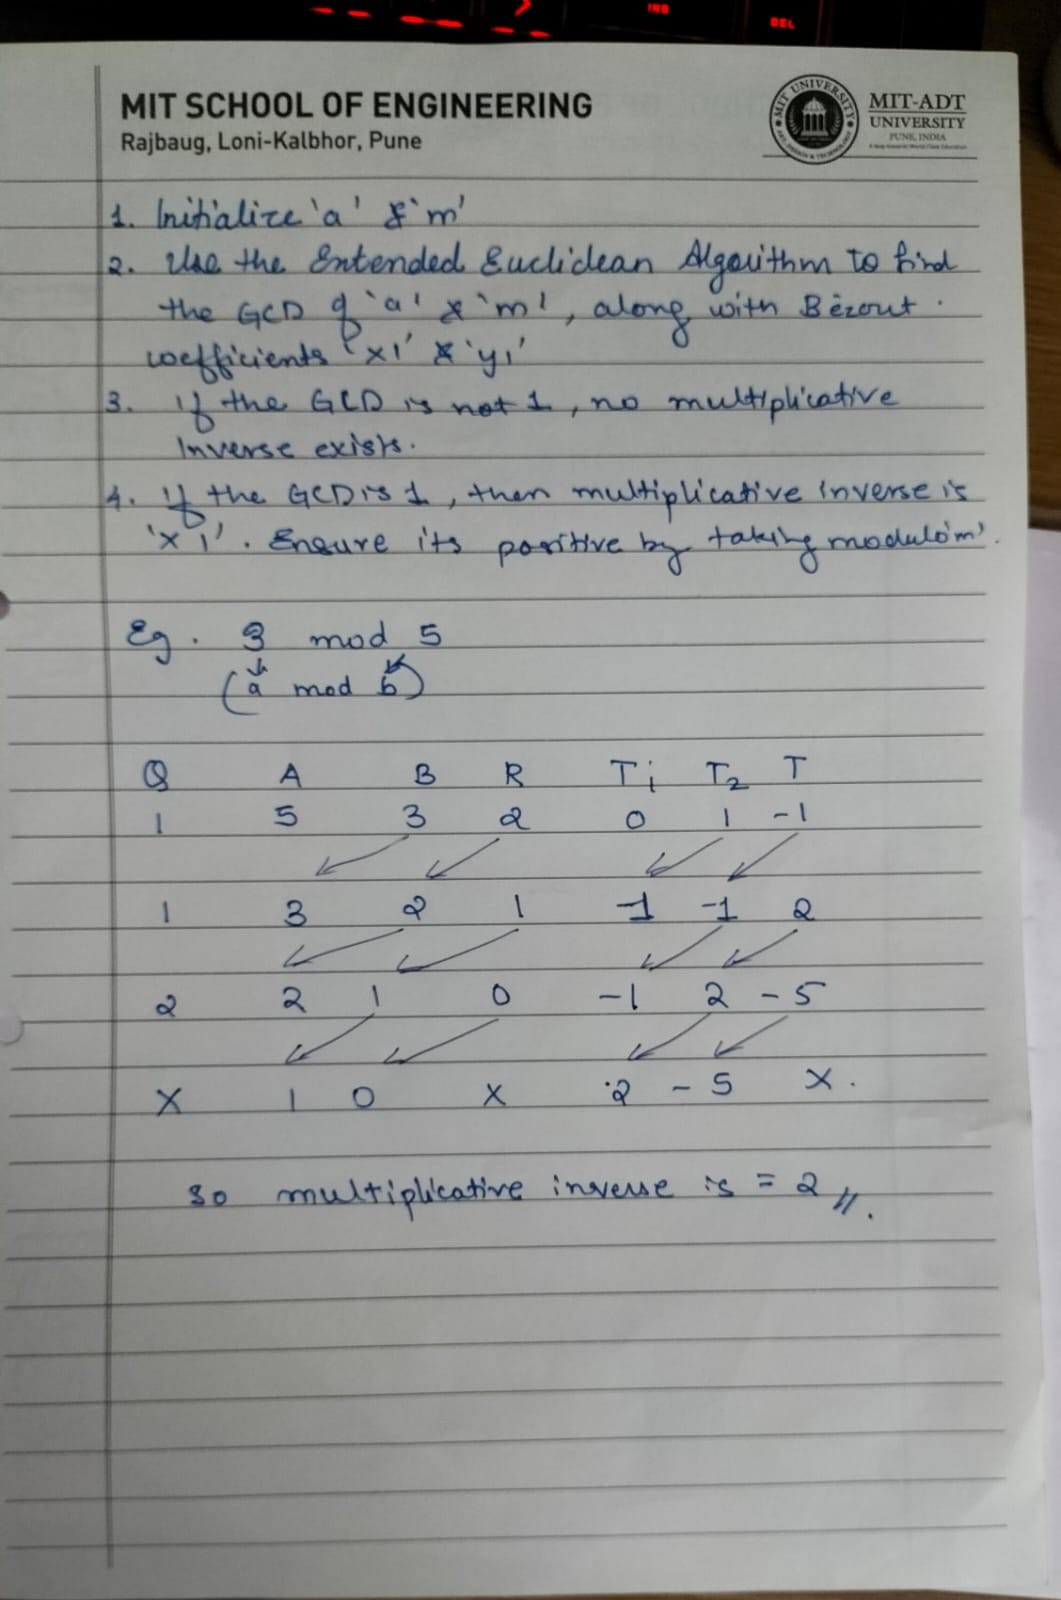 MIT SCHOOL OF ENGINEERING
Rajbaug, Loni-Kalbhor, Pune
MIT UNIVERSITY
MIT-ADT
UNIVERSITY
PUNE, INDIA
1. Initialize 'a' & 'm'
2. Use the Extended Euclidean Algorithm to find
the GCD of 'a' & 'm', along with Bézout
coefficients 'x1' & 'y1'
3. If the GCD is not 1, no multiplicative
Inverse exists.
4. If the GCD is 1, then multiplicative inverse is
'x1'. Ensure its positive by taking modulo 'm'.
Eg. 3 mod 5
(a mod b)
Q A B R T1 T2 T
1 5 3 2 0 1 -1
1 3 2 1 -1 -1 2
2 2 1 0 -1 2 -5
X 1 0 X 2 -5 X.
So multiplicative inverse is = 2 //.
INS
DEL